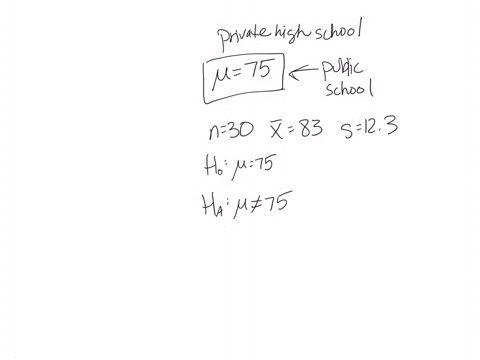 private high school
μ=75 ← public
school
n=30 x̄=83 s=12.3
H₀: μ=75
Hₐ: μ≠75